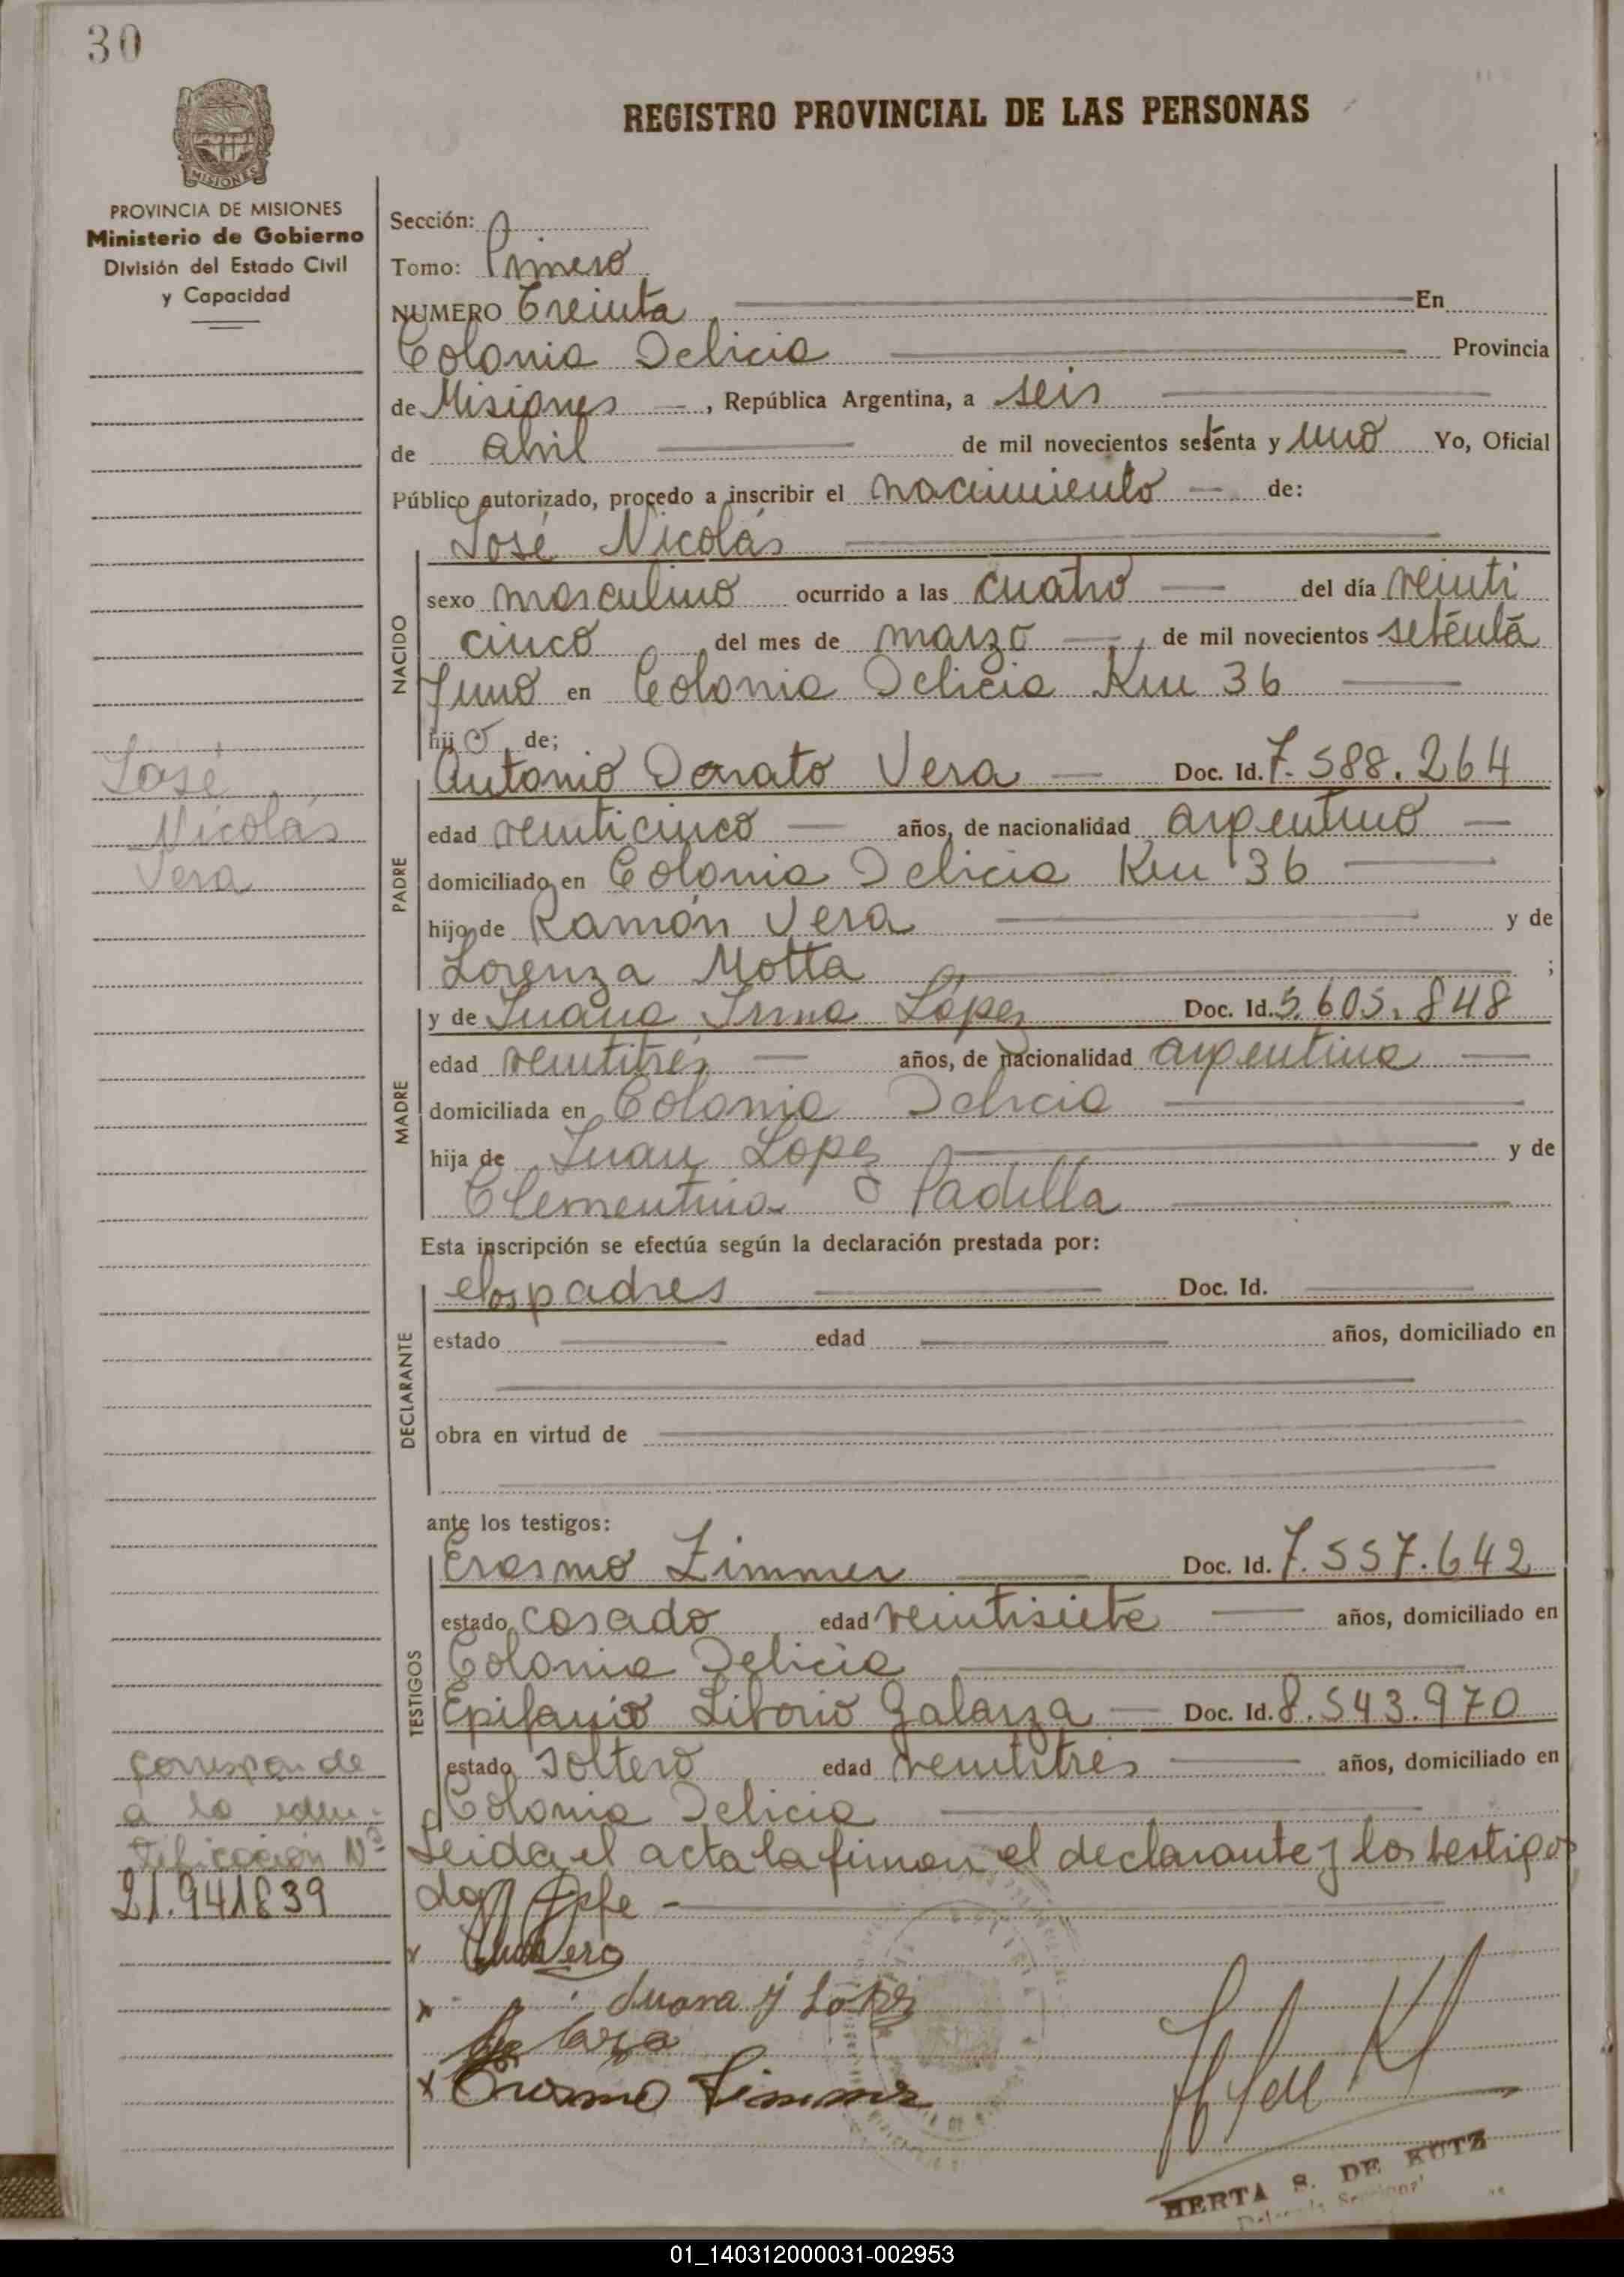 30
REGISTRO PROVINCIAL DE LAS PERSONAS
MISIONES
PROVINCIA DE MISIONES
Ministerio de Gobierno
División del Estado Civil
y Capacidad
Sección:
Tomo: Primero
NUMERO Treinta En
Colonia Delicia Provincia
de Misiones, República Argentina, a seis
de abril de mil novecientos setenta y uno Yo, Oficial
Público autorizado, procedo a inscribir el nacimiento de:
José Nicolás
NACIDO
sexo masculino ocurrido a las cuatro del día veinti
cinco del mes de marzo, de mil novecientos setenta
y uno en Colonia Delicia Km 36
hijo de;
José
Nicolás
Vera
PADRE
Antonio Donato Vera Doc. Id. 7.588.264
edad veinticinco años, de nacionalidad argentino
domiciliado en Colonia Delicia Km 36
hijo de Ramón Vera y de
Lorenza Motta ;
MADRE
y de Juana Irma López Doc. Id. 5.605.848
edad veintitrés años, de nacionalidad argentina
domiciliada en Colonia Delicia
hija de Juan Lopez y de
Clementina Padilla
Esta inscripción se efectúa según la declaración prestada por:
DECLARANTE
padres Doc. Id.
estado edad años, domiciliado en
obra en virtud de
ante los testigos:
TESTIGOS
Erasmo Zimmer Doc. Id. 7.557.642
estado casado edad veintisiete años, domiciliado en
Colonia Delicia
Epifanio Liborio Galarza Doc. Id. 8.543.970
estado soltero edad veintitrés años, domiciliado en
Colonia Delicia
Corresponde
a la iden-
tificación Nº
21.941839
Leida el acta la firman el declarante y los testigos
doy fe
x Vera
x Juana y Lopez
x Erasmo Zimmer
HERTA S. DE KUTZ
01_140312000031-002953